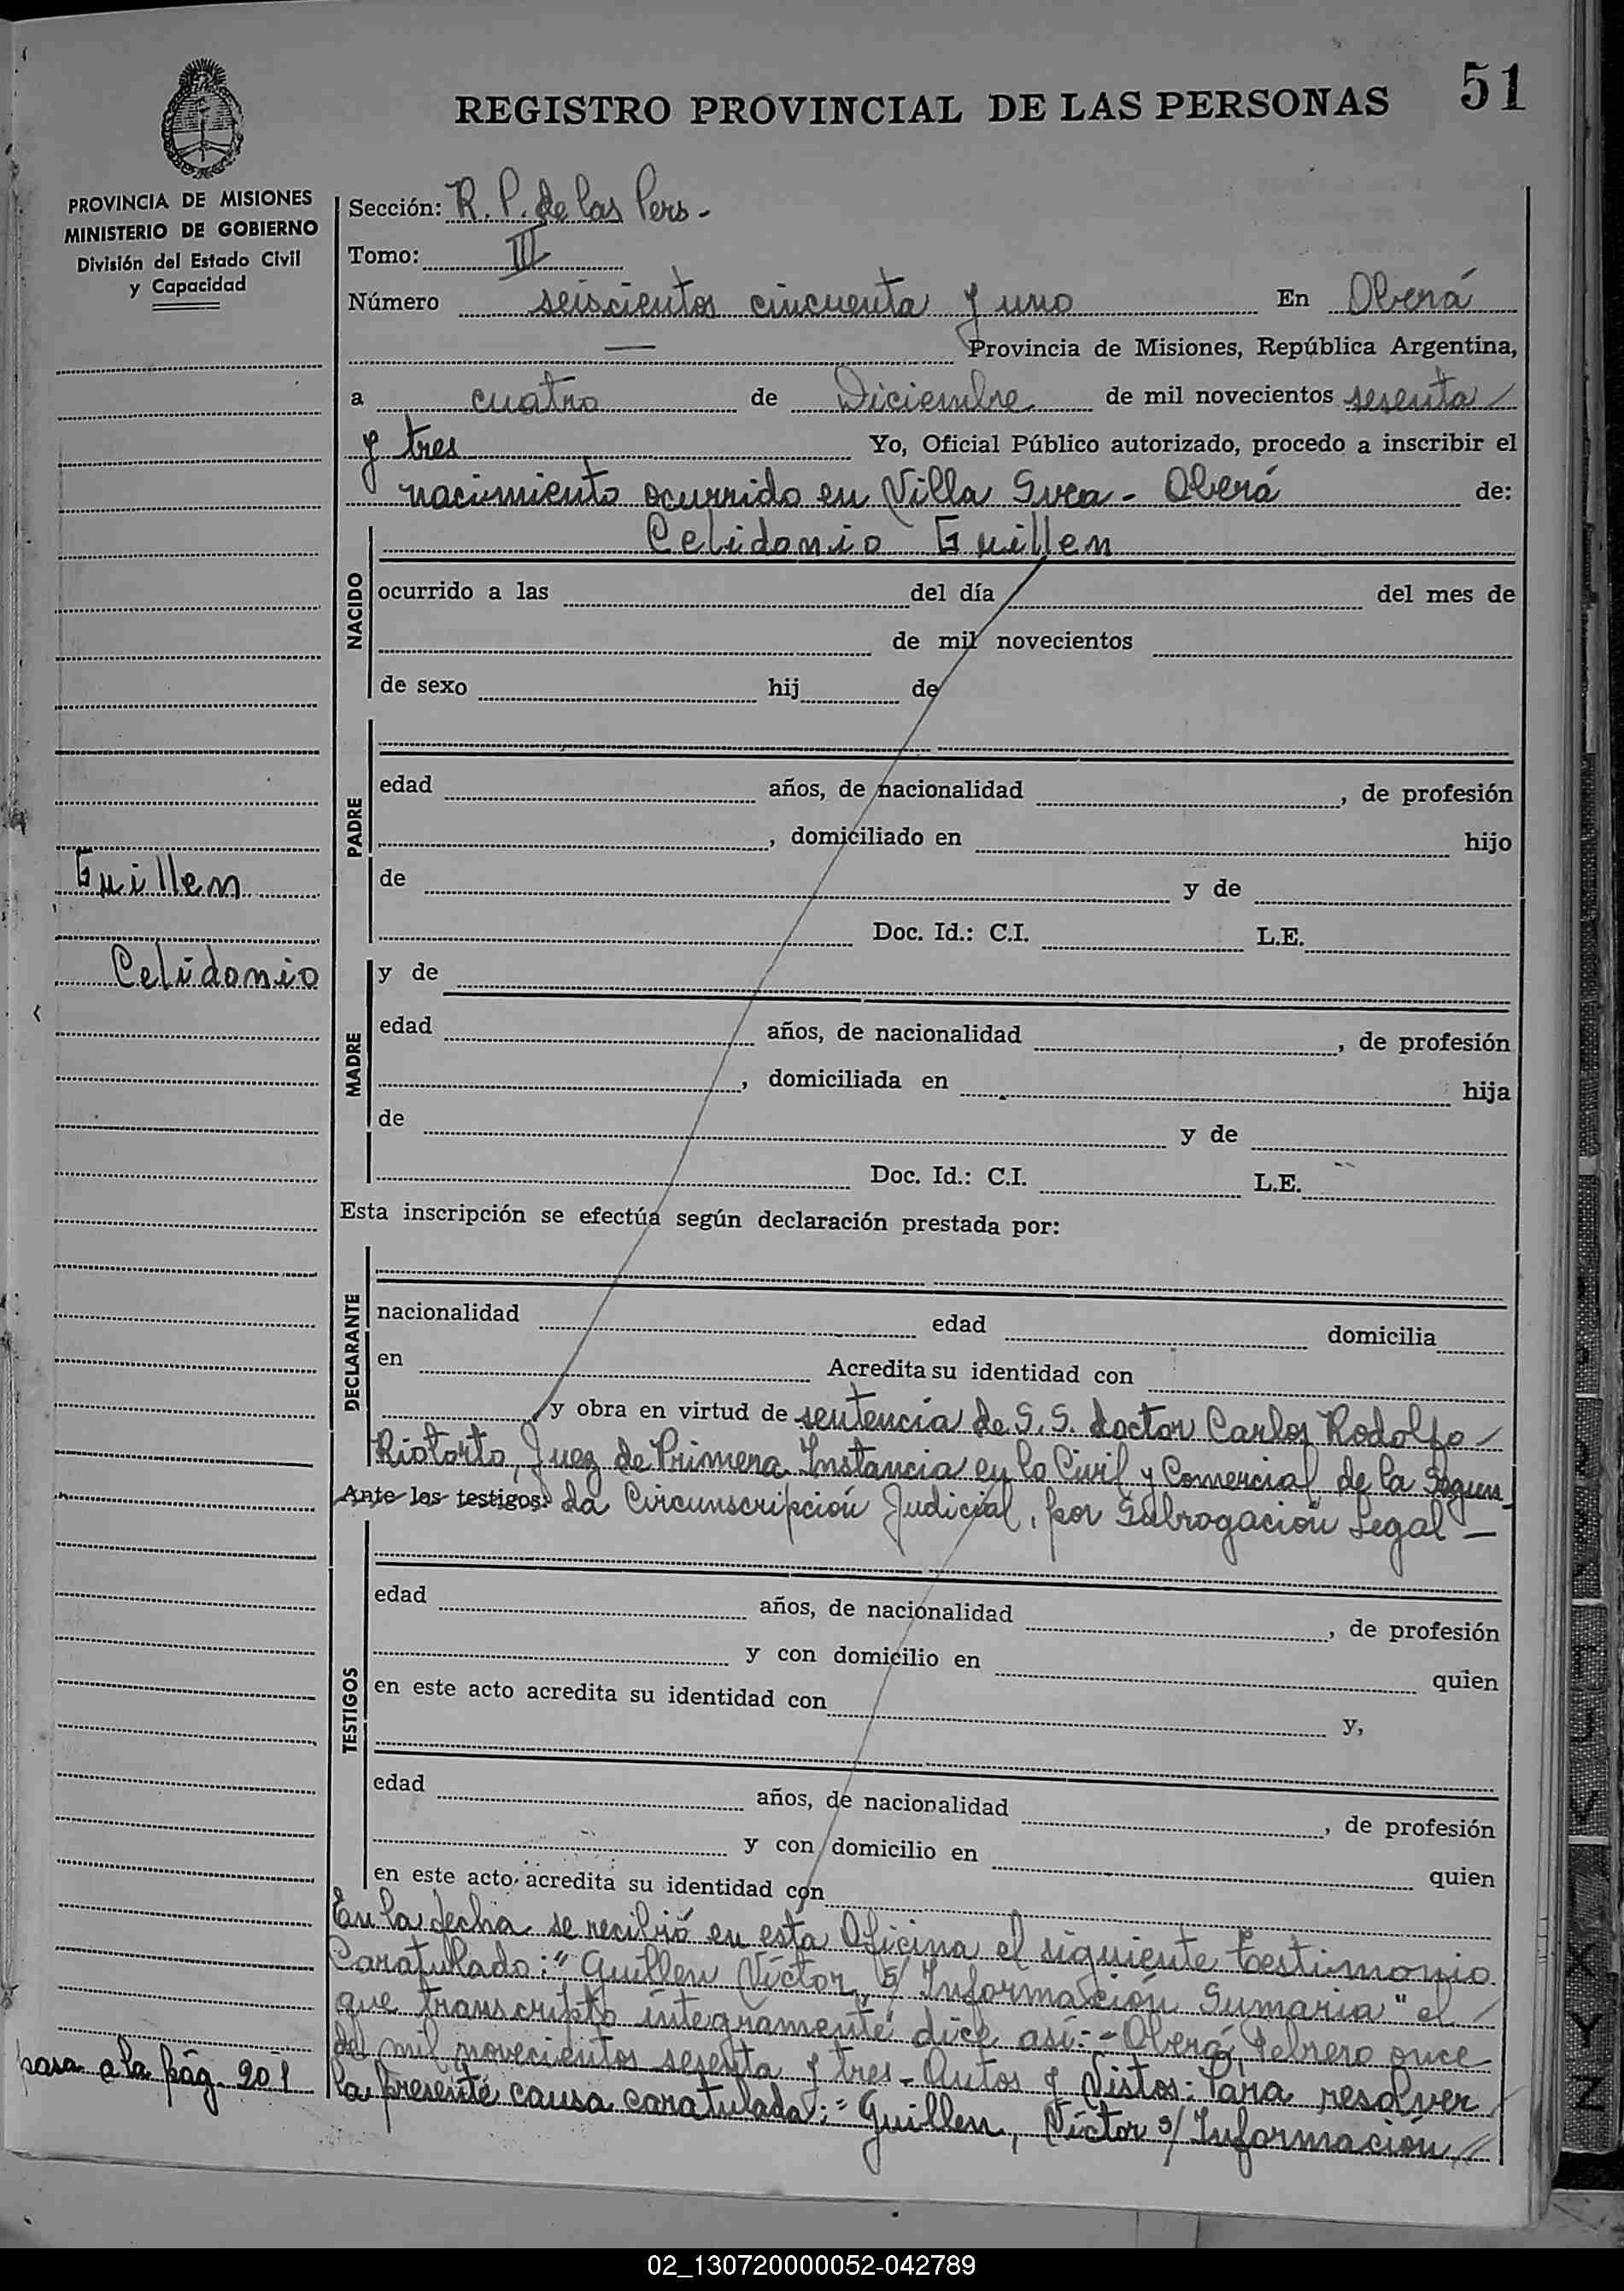 REGISTRO PROVINCIAL DE LAS PERSONAS 51
PROVINCIA DE MISIONES
MINISTERIO DE GOBIERNO
División del Estado Civil
y Capacidad
Sección: R. P. de las Pers -
Tomo: III
Número seiscientos cincuenta y uno En Oberá
— Provincia de Misiones, República Argentina,
a cuatro de Diciembre de mil novecientos sesenta
y tres Yo, Oficial Público autorizado, procedo a inscribir el
nacimiento ocurrido en Villa Svea - Oberá de:
Celidonio Guillen
NACIDO
ocurrido a las del día del mes de
de mil novecientos
de sexo hij de
PADRE
edad años, de nacionalidad , de profesión
, domiciliado en hijo
de y de
Doc. Id.: C.I. L.E.
Guillen
Celidonio
MADRE
y de
edad años, de nacionalidad , de profesión
, domiciliada en hija
de y de
Doc. Id.: C.I. L.E.
Esta inscripción se efectúa según declaración prestada por:
DECLARANTE
nacionalidad edad domicilia
en Acredita su identidad con
y obra en virtud de sentencia de S. S. doctor Carlos Rodolfo
Riotorto, Juez de Primera Instancia en lo Civil y Comercial de la Segun
Ante los testigos: da Circunscripción Judicial, por Subrogación Legal —
TESTIGOS
edad años, de nacionalidad , de profesión
y con domicilio en quien
en este acto acredita su identidad con y,
edad años, de nacionalidad , de profesión
y con domicilio en quien
en este acto acredita su identidad con
En la fecha se recibió en esta Oficina el siguiente testimonio
Caratulado: "Guillen Víctor, s/ Información Sumaria" el
que transcripto íntegramente dice así: - Oberá, Febrero once
de mil novecientos sesenta y tres - Autos y Vistos: Para resolver
la presente causa caratulada: "Guillen, Víctor s/ Información
pasa a la pág. 201
02_130720000052-042789